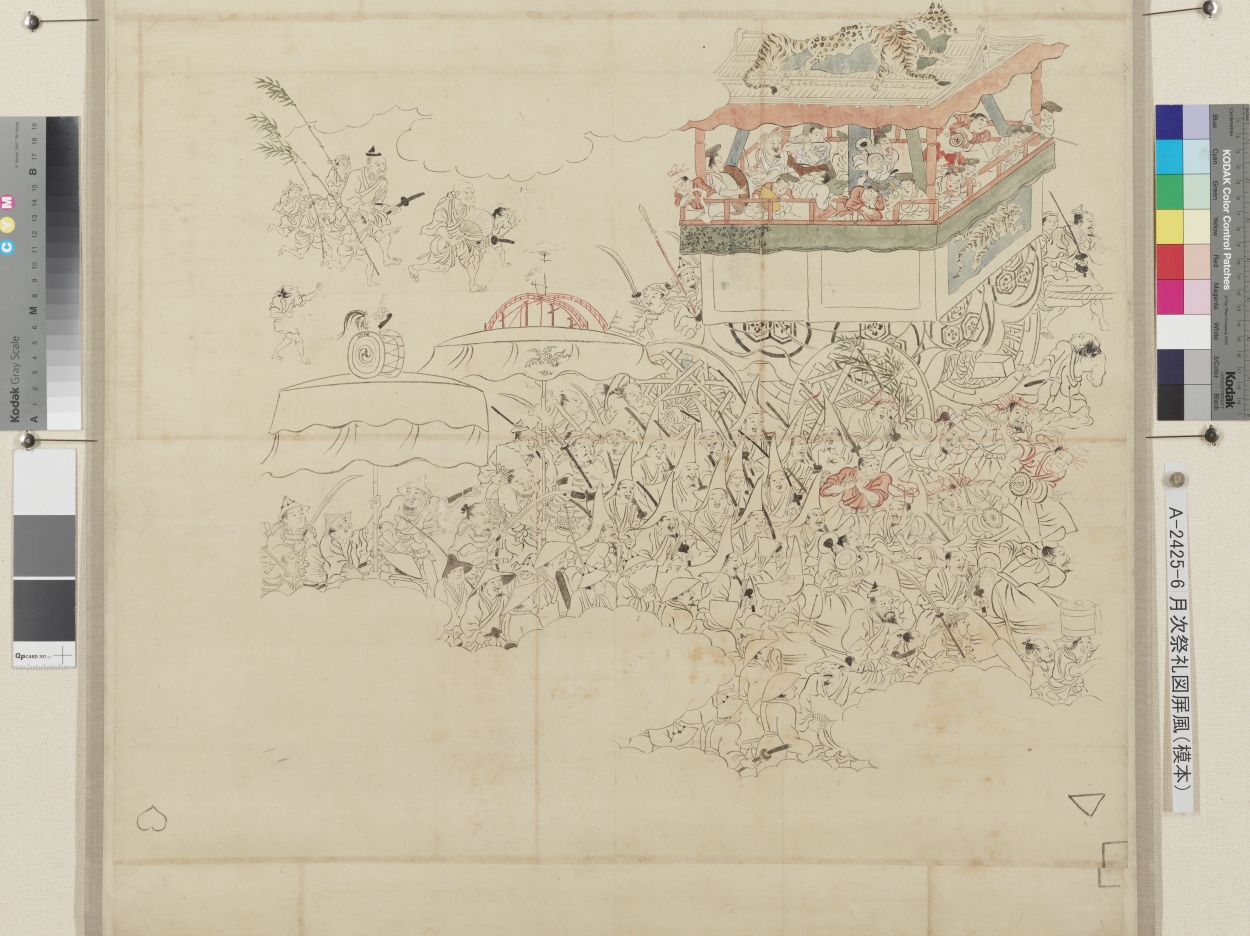 Kodak Gray Scale
C Y M
A 1 2 3 4 5 6 M 8 9 10 11 12 13 14 15 B 17 18 19
QPCARD 101
KODAK Color Control Patches
Kodak
Blue
Cyan
Green
Yellow
Red
Magenta
White
3/Color
Black
A-2425-6 月次祭礼図屏風(模本)